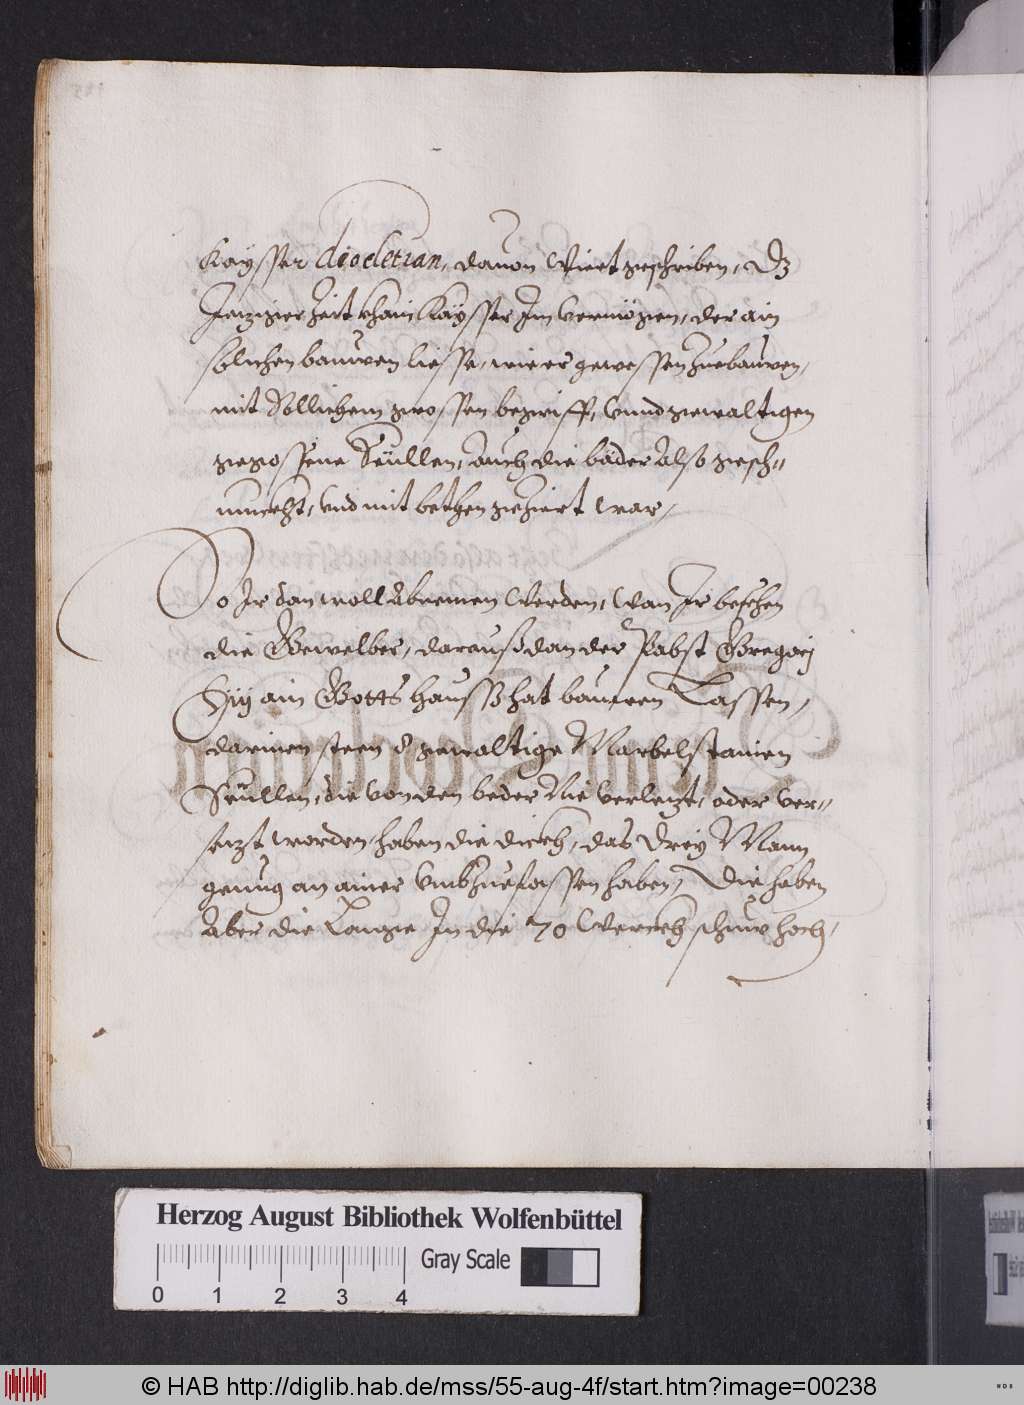 Kaÿsser dioeletian, dauon Wiert geschriben, Dz
Jeziger Zeit khain Kaÿsser Im vermögen, der ain
solichen bauwen liesse, wie er gewessen Zuebauwen,
mit Sollichem grossen begriff, Vnnd gewaltigen
gegossene Seüllen, Auch die bäder Also gesch-
mückht, vnd mit bethen geziert war,
Do Ir dan woll Abnemen Werden, Wan Ir besehen
die Gewelber, darauß dan der Pabst Gregorj
Xiij ain Gotts hauß hat bauwen Lassen,
darinen steen 8 gewaltige Marbelstainen
Seüllen, die von den beder Nie verlezt, oder ver-
sezt worden, haben die dickh, das Dreÿ Mann
genug an ainer Vmbzuefassen haben, Die haben
Aber die Lange In die 70 Werckh schuw hoch,
Herzog August Bibliothek Wolfenbüttel
Gray Scale
0 1 2 3 4
© HAB http://diglib.hab.de/mss/55-aug-4f/start.htm?image=00238